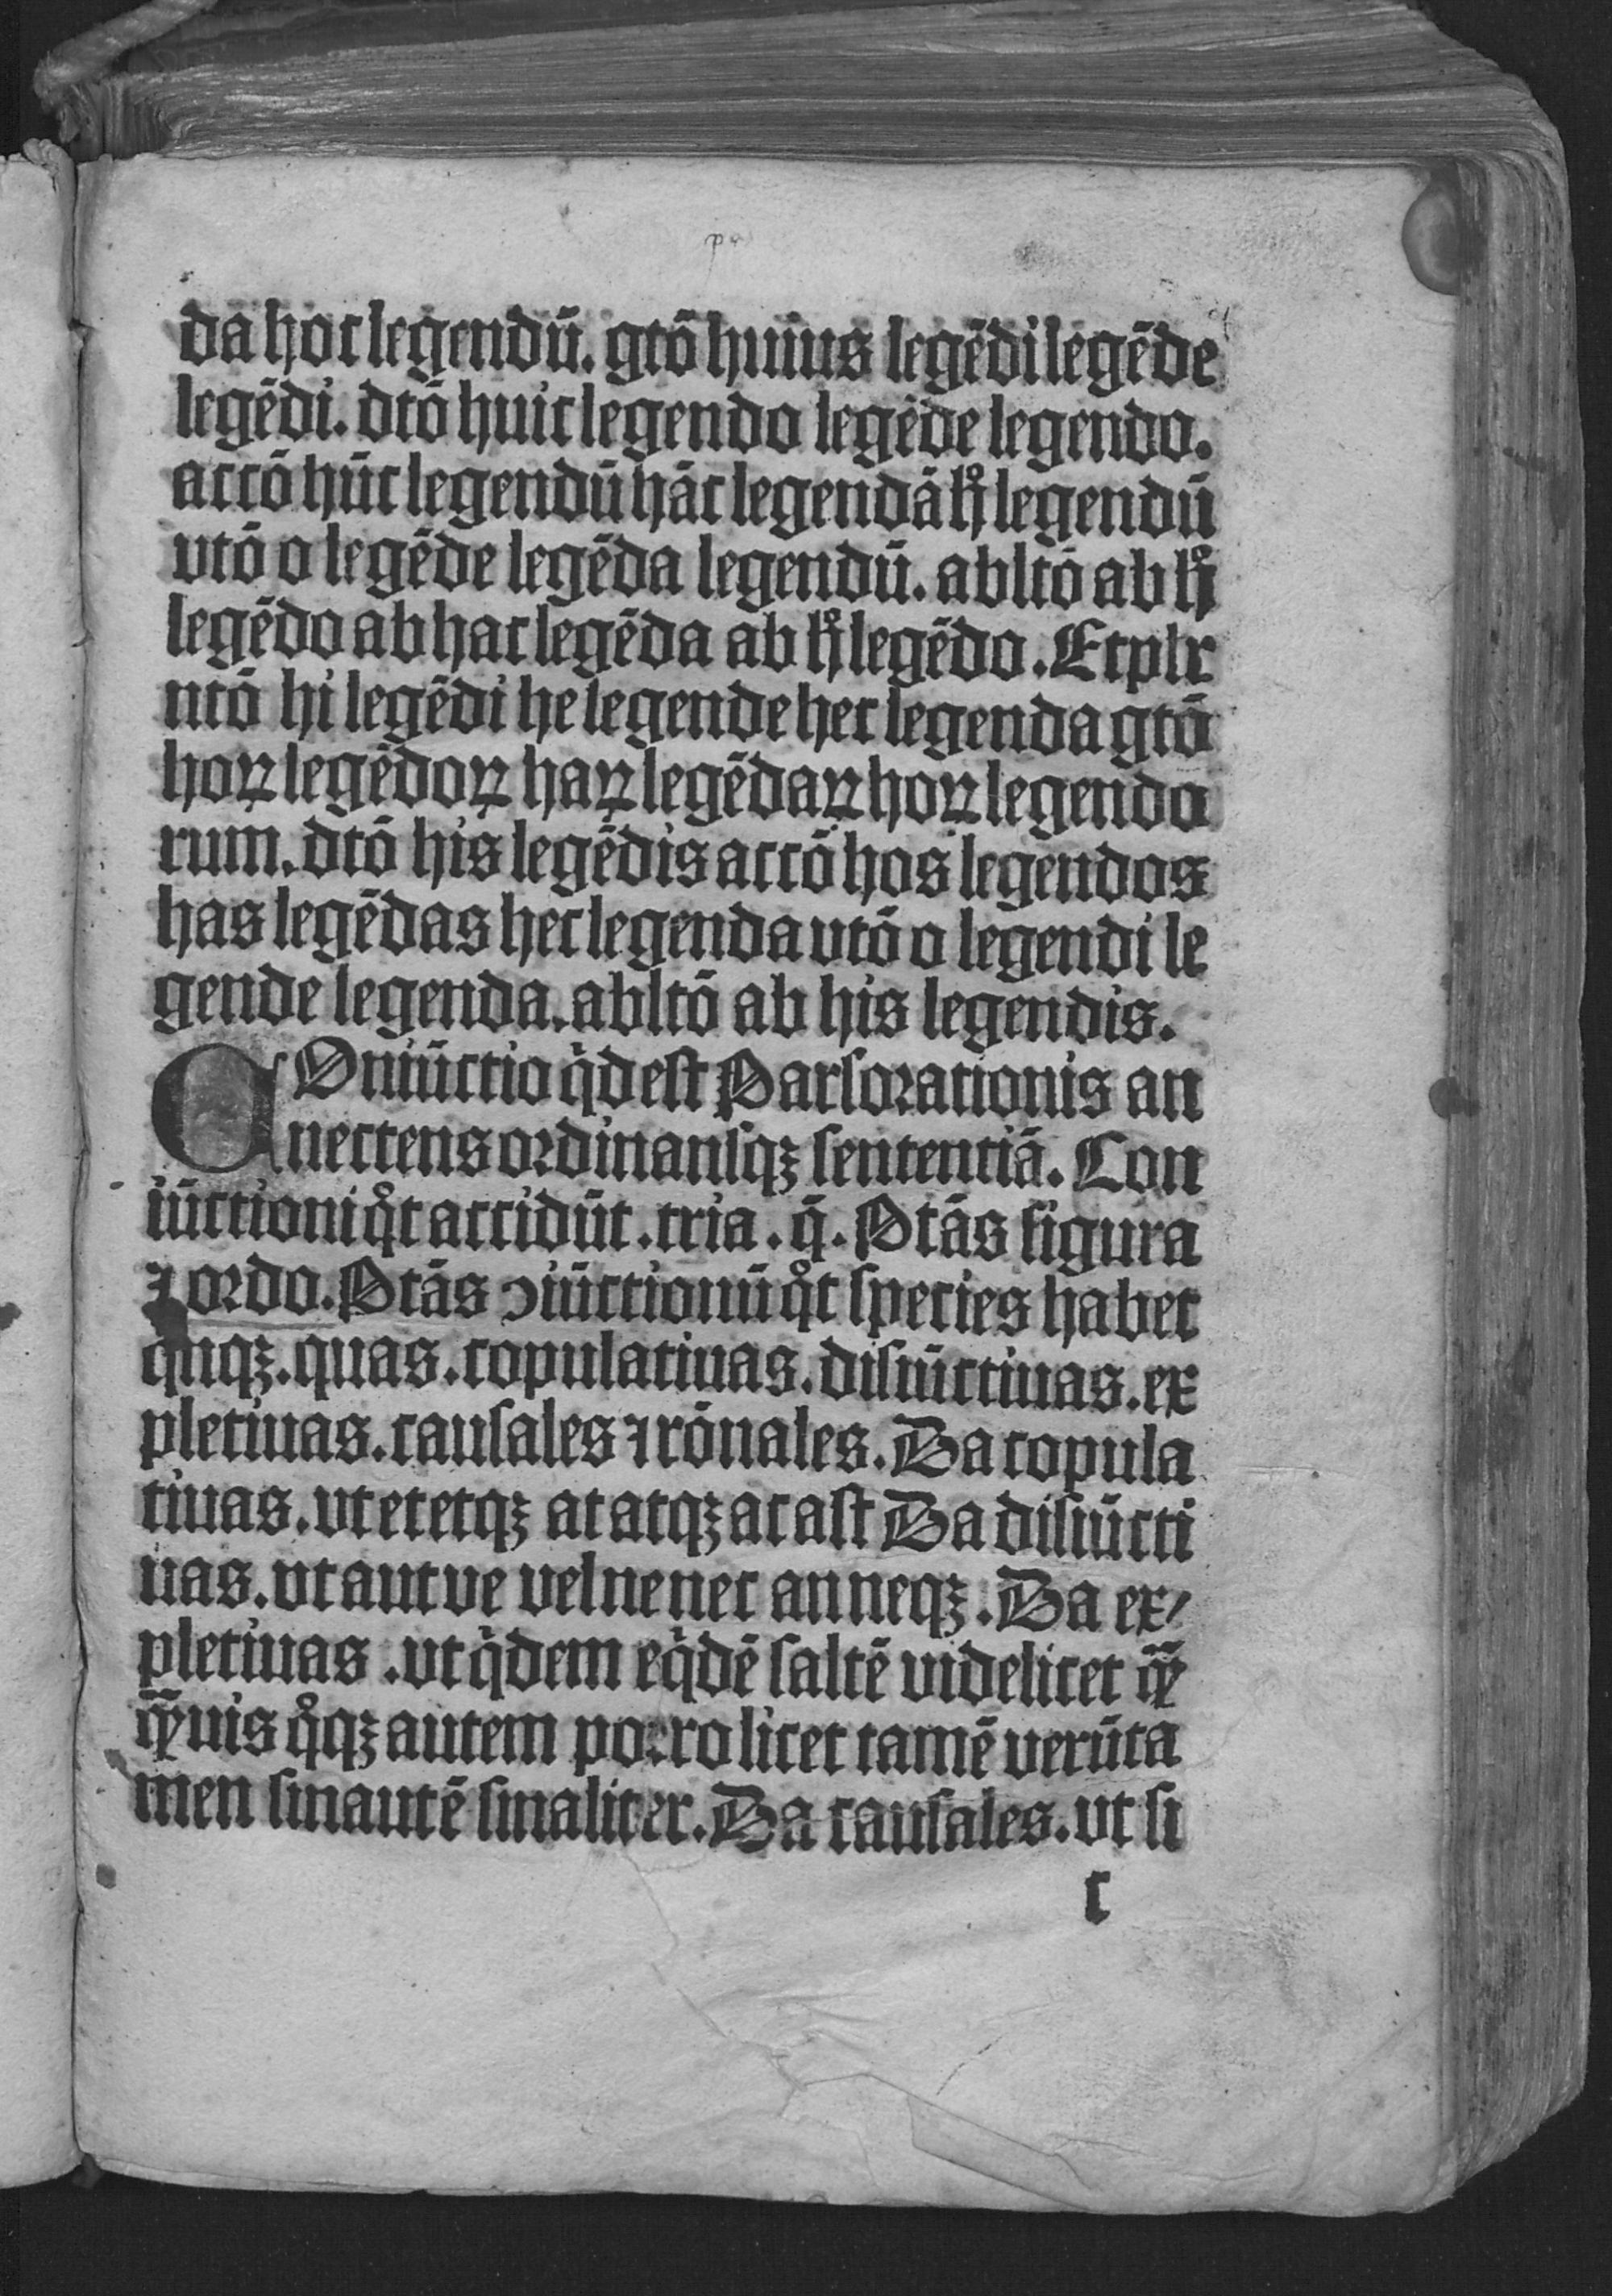 da hoc legendū. gtō huius legēdi legēde
legēdi. dtō huic legendo legēde legendo.
accō hūc legendū hāc legendā hͦ legendū
vtō o legēde legēda legendū. abltō ab hͦ
legēdo ab hac legēda ab hͦ legēdo. Et plr
ntō hi legēdi he legende hec legenda gtō
hoꝝ legēdoꝝ haꝝ legēdaꝝ hoꝝ legendo
rum. dtō his legēdis accō hos legendos
has legēdas hec legenda vtō o legendi le
gende legenda. abltō ab his legendis.
COniūctio qͥd est Pars orationis an
nectens ordinansqꝫ sententiā. Con
iūctioni qͦt accidūt. tria. q̄. Ptās figura
⁊ ordo. Ptās ↄiūctionū qͦt species habet
qnqꝫ. quas. copulatiuas. disiūctiuas. ex
pletiuas. causales ⁊ rōnales. Da copula
tiuas. vt et etqꝫ at atqꝫ ac ast Da disiūcti
uas. vt aut ve vel ne nec an neqꝫ. Da ex/
pletiuas. vt qͥdem eqͥdē saltē videlicet qͣꝫ
qͣꝫuis qͦqꝫ autem porro licet tamē verūta
men sinautē sinaliter. Da causales. vt si
c